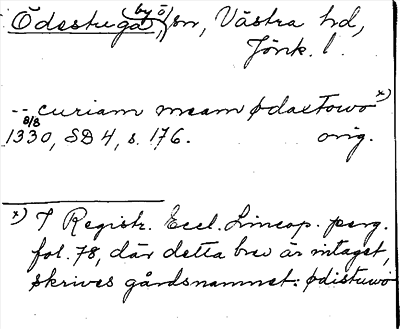 Ödestuga (by ö,) sn, Västra hd,
Jönk. l.
-- curiam meam ødastowo x)
8/8
1330, SD 4, s. 176. orig.
x) I Registr. Eccl. Lincop. perg.
fol. 78, där detta brev är intaget,
skrives gårdsnamnet: ødistuwo